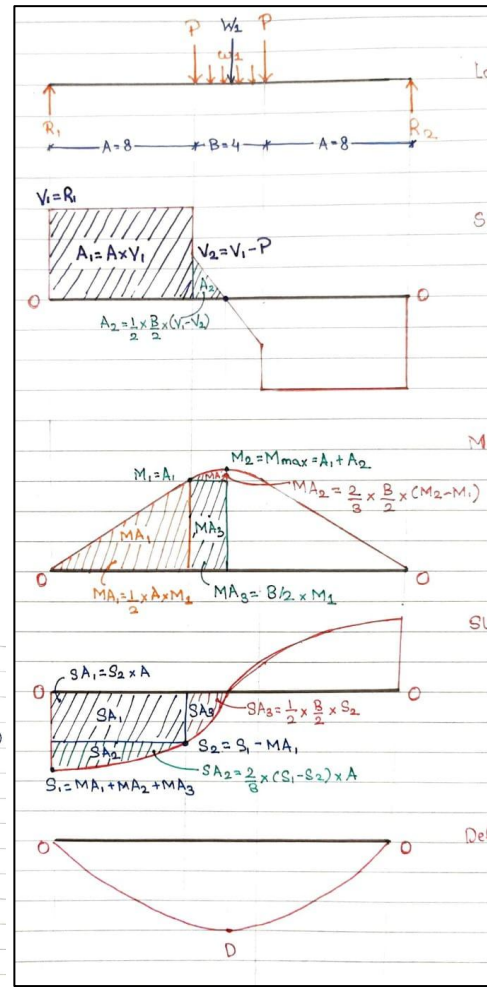 P W1 P
w1
R1 R2
A=8 B=4 A=8
V1=R1
A1=A×V1
V2=V1-P
A2
0 0
A2=1/2×B/2×(V1-V2)
M2=Mmax=A1+A2
M1=A1
MA2=2/3×B/2×(M2-M1)
MA1
MA3
0 0
MA1=1/2×A×M1
MA3=B/2×M1
SA1=S2×A
0 0
SA1
SA3
SA3=1/2×B/2×S2
SA2
S2=S1-MA1
SA2=2/3×(S1-S2)×A
S1=MA1+MA2+MA3
0 0
D